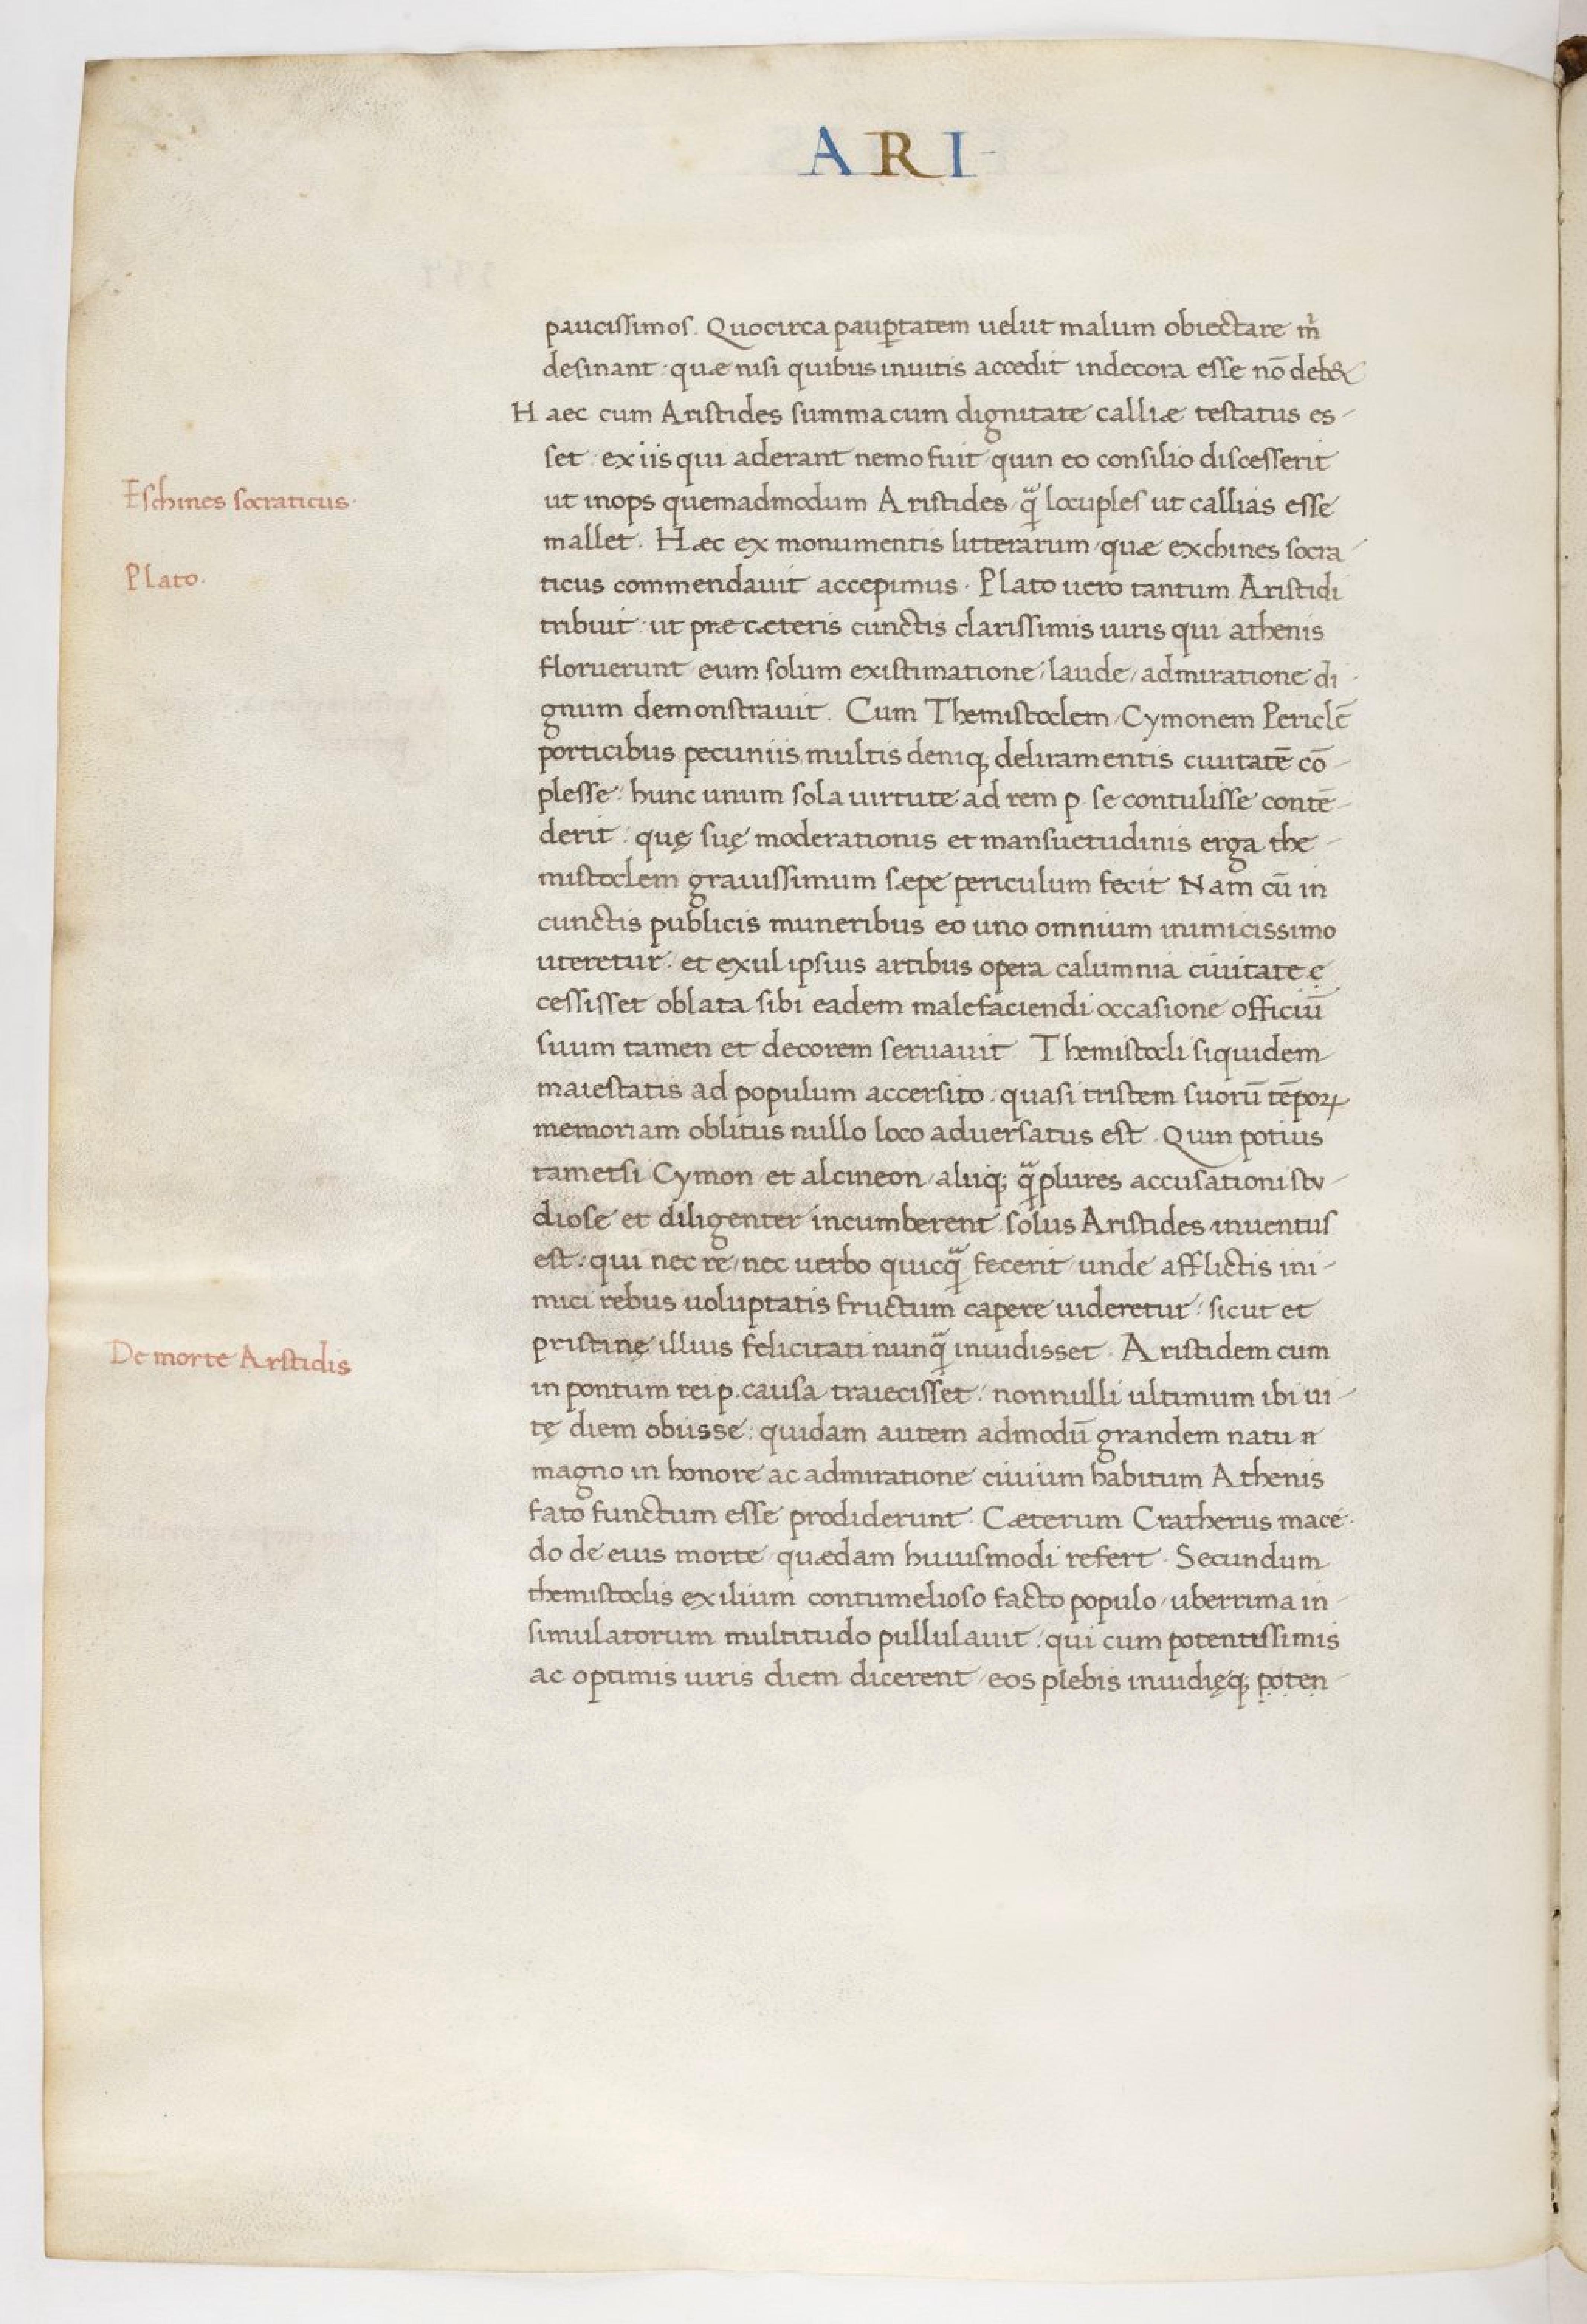 ARI-
paucissimos. Quocirca paup̱tatem uelut malum obiectare m̄
desinant: quæ nisi quibus inuitis accedit indecora esse nō deb&
Haec cum Aristides summa cum dignitate calliæ testatus es-
set ex iis qui aderant nemo fuit quin eo consilio discesserit
Eschines socraticus.
ut inops quemadmodum Aristides, q̄ locuples ut callias esse
mallet. Hæc ex monumentis litterarum, quæ exchines socra-
Plato.
ticus commendauit accepimus. Plato uero tantum Aristidi
tribuit: ut præ cæteris cunctis clarissimis uiris qui athenis
floruerunt eum solum existimatione, laude, admiratione di-
gnum demonstrauit. Cum Themistoclem, Cymonem Periclē
porticibus pecuniis multis deniq; deliramentis ciuitatē cō-
plesse: hunc unum sola uirtute ad rem p. se contulisse contē-
derit: quę suę moderationis et mansuetudinis erga the-
mistoclem grauissimum sæpe periculum fecit Nam cū in
cunctis publicis muneribus eo uno omnium inimicissimo
uteretur: et exul ipsius artibus opera calumnia ciuitate e
cessisset oblata sibi eadem malefaciendi occasione officiū
suum tamen et decorem seruauit Themistocli siquidem
maiestatis ad populum accersito: quasi tristem suorū tēpoꝝ
memoriam oblitus nullo loco aduersatus est. Quin potius
tametsi Cymon et alcmeon, aliiq; q̄plures accusationi stu-
diose et diligenter incumberent solus Aristides inuentus
est: qui nec re, nec uerbo quicq̄ fecerit unde afflictis ini-
mici rebus uoluptatis fructum capere uideretur: sicut et
De morte Arstidis
pristinę illius felicitati nunq̄ inuidisset. Aristidem cum
in pontum rei p. causa traiecisset: nonnulli ultimum ibi ui-
tę diem obiisse: quidam autem admodū grandem natu
magno in honore ac admiratione ciuium habitum Athenis
fato functum esse prodiderunt. Cæterum Cratherus mace-
do de eius morte quædam huiusmodi refert. Secundum
themistoclis exilium contumelioso facto populo, uberrima in-
simulatorum multitudo pullulauit: qui cum potentissimis
ac optimis uiris diem dicerent, eos plebis inuidięq; poten-